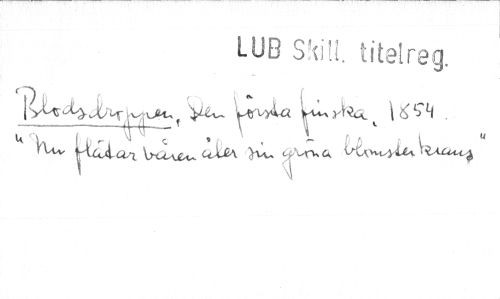 LUB Skill. titelreg.
Blodsdroppen, Den första finska, 1854.
"Nu flätar våren åter sin gröna blomsterkrans"